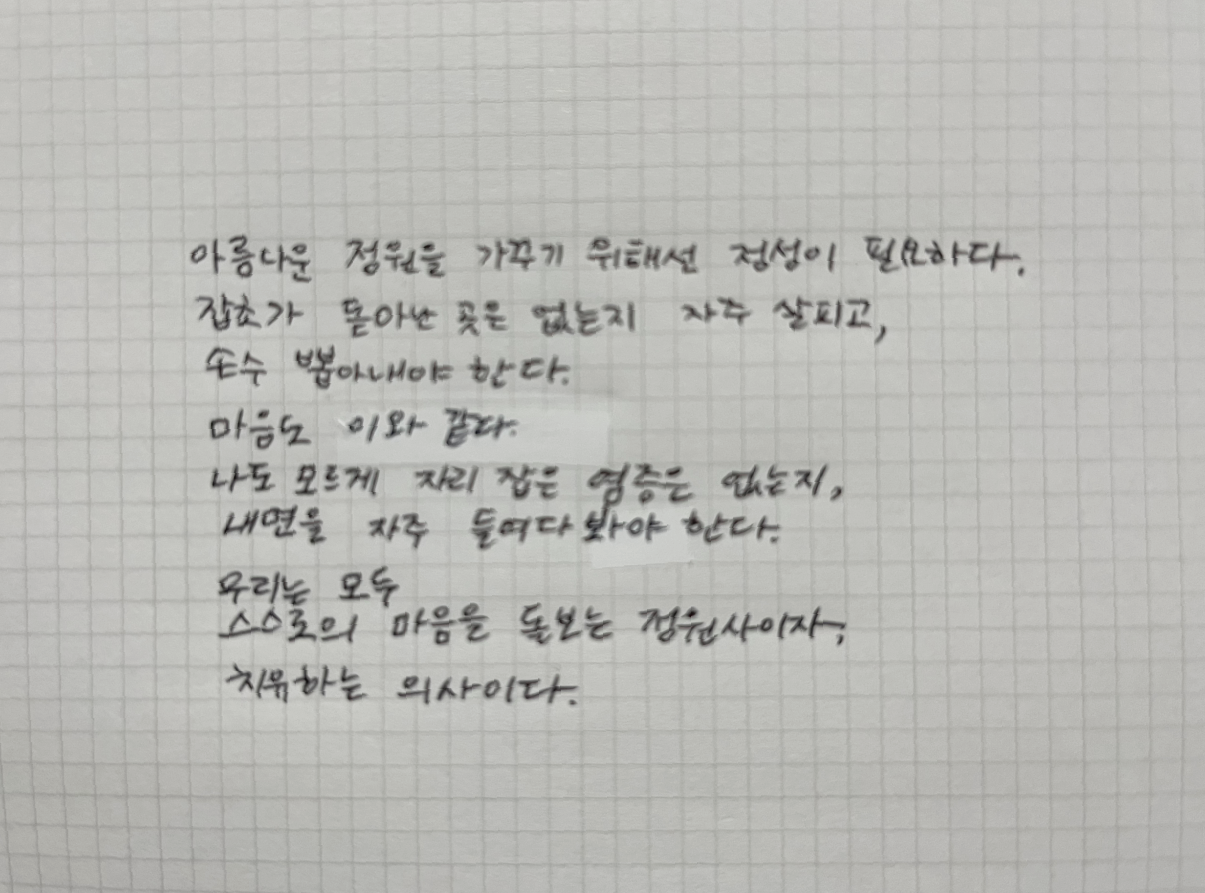 아름다운 정원을 가꾸기 위해선 정성이 필요하다.
잡초가 돋아난 곳은 없는지 자주 살피고,
손수 뽑아내야 한다.
마음도 이와 같다.
나도 모르게 자리 잡은 염증은 없는지,
내면을 자주 들여다 봐야 한다.
우리는 모두
스스로의 마음을 돌보는 정원사이자,
치유하는 의사이다.